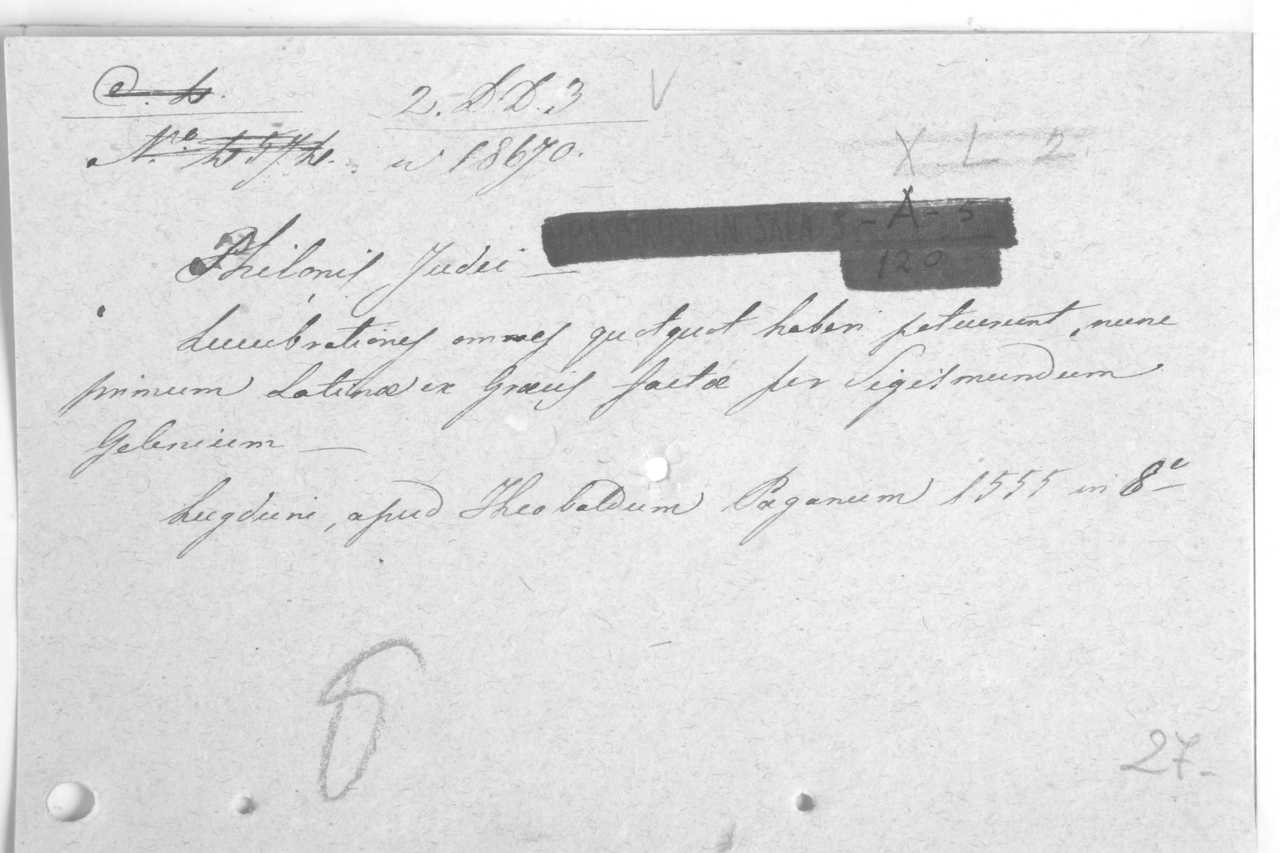 2. D D. 3 V
N.º 18670.
X L 2
PASSATO IN SALA 5 - A - 5
120
Philonis Judei —
Lucubrationes omnes quotquot haberi potuerunt, nunc
primum Latinæ ex Græcis factæ per Sigismundum
Gelenium —
Lugduni, apud Theobaldum Paganum 1555 in 8º
27-